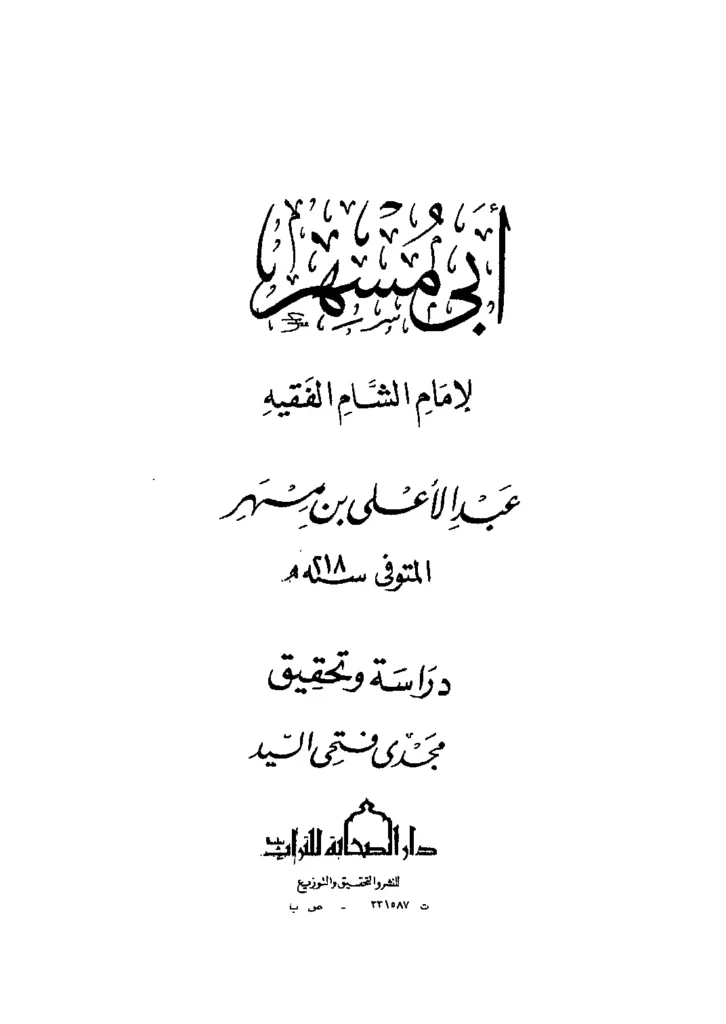 أبي مُسْهِر
لإمَامِ الشَّامِ الفَقيهِ
عَبْدِ الأعْلى بن مِسْهَرِ
المتوفى سنه ٢١٨ هـ
درَاسَة وتحقِيق
مجْدى فتحِى السّيد
دار الصحابة للتراث
للنشر والتحقيق والتوزيع
ت ٢٢١٥٨٧ - ص ب